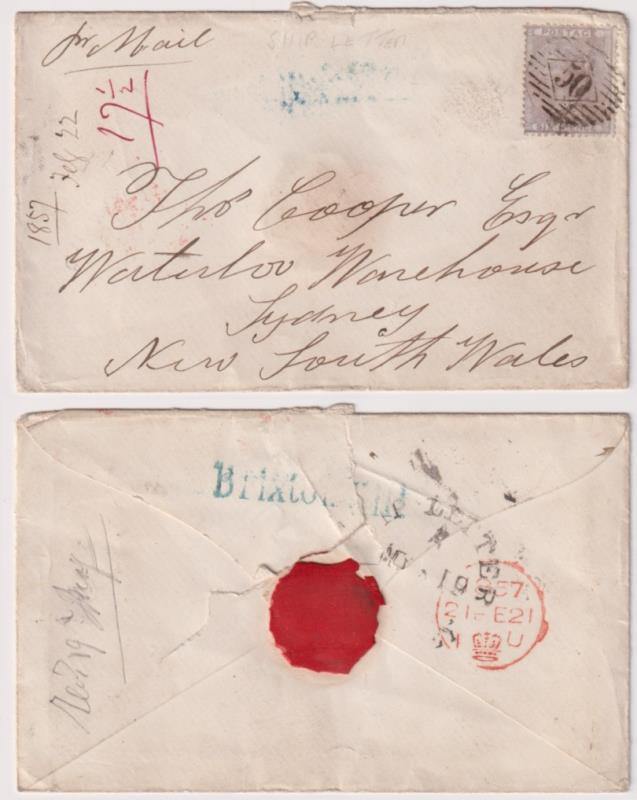 pr Mail
SHIP LETTER
POSTAGE
50
17 1/2
1857 Feb 22
Thos Cooper Esqr
Waterloo Warehouse
Sydney
New South Wales
Brixton Hill
LETTER
19
57
21 FE 21
U